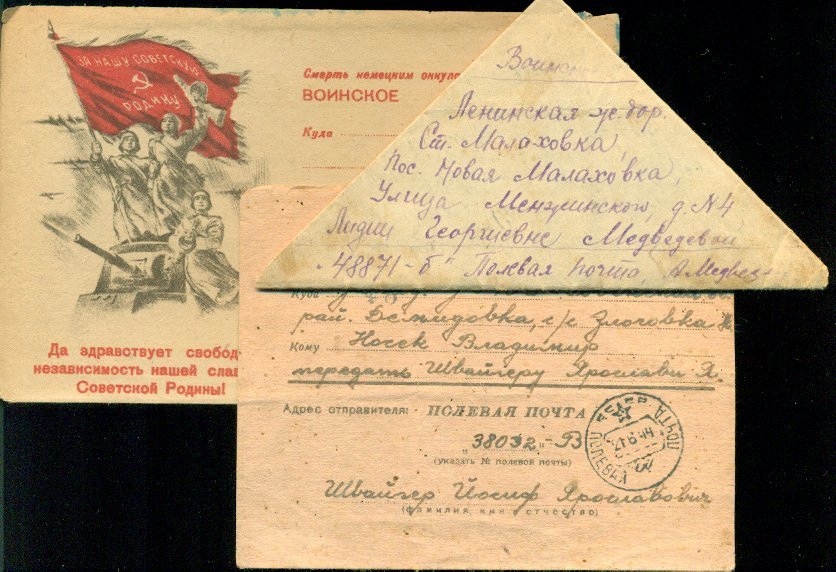 ЗА НАШУ СОВЕТСКУЮ
РОДИНУ
Смерть немецким оккупа
ВОИНСКОЕ
Куда
Да здравствует свобод
независимость нашей слав
Советской Родины!
Воинс
Ленинская ж. дор.
Ст. Малаховка,
Пос. Новая Малаховка,
Улица Менжинского, д. N 4
Лидии Георгиевне Медведевой
"48871-б" Полевая почта, А. Медвед
Куда
рай. Демидовка, с/с Злочовка
Кому Носек Владимир
передать Швайгеру Ярославу Я.
Адрес отправителя: ПОЛЕВАЯ ПОЧТА
„38032"-В
(указать № полевой почты)
Швайгер Йосиф Ярославович
(фамилия, имя и отчество)
СССР ПОЧТА
44
ПОЛЕВАЯ